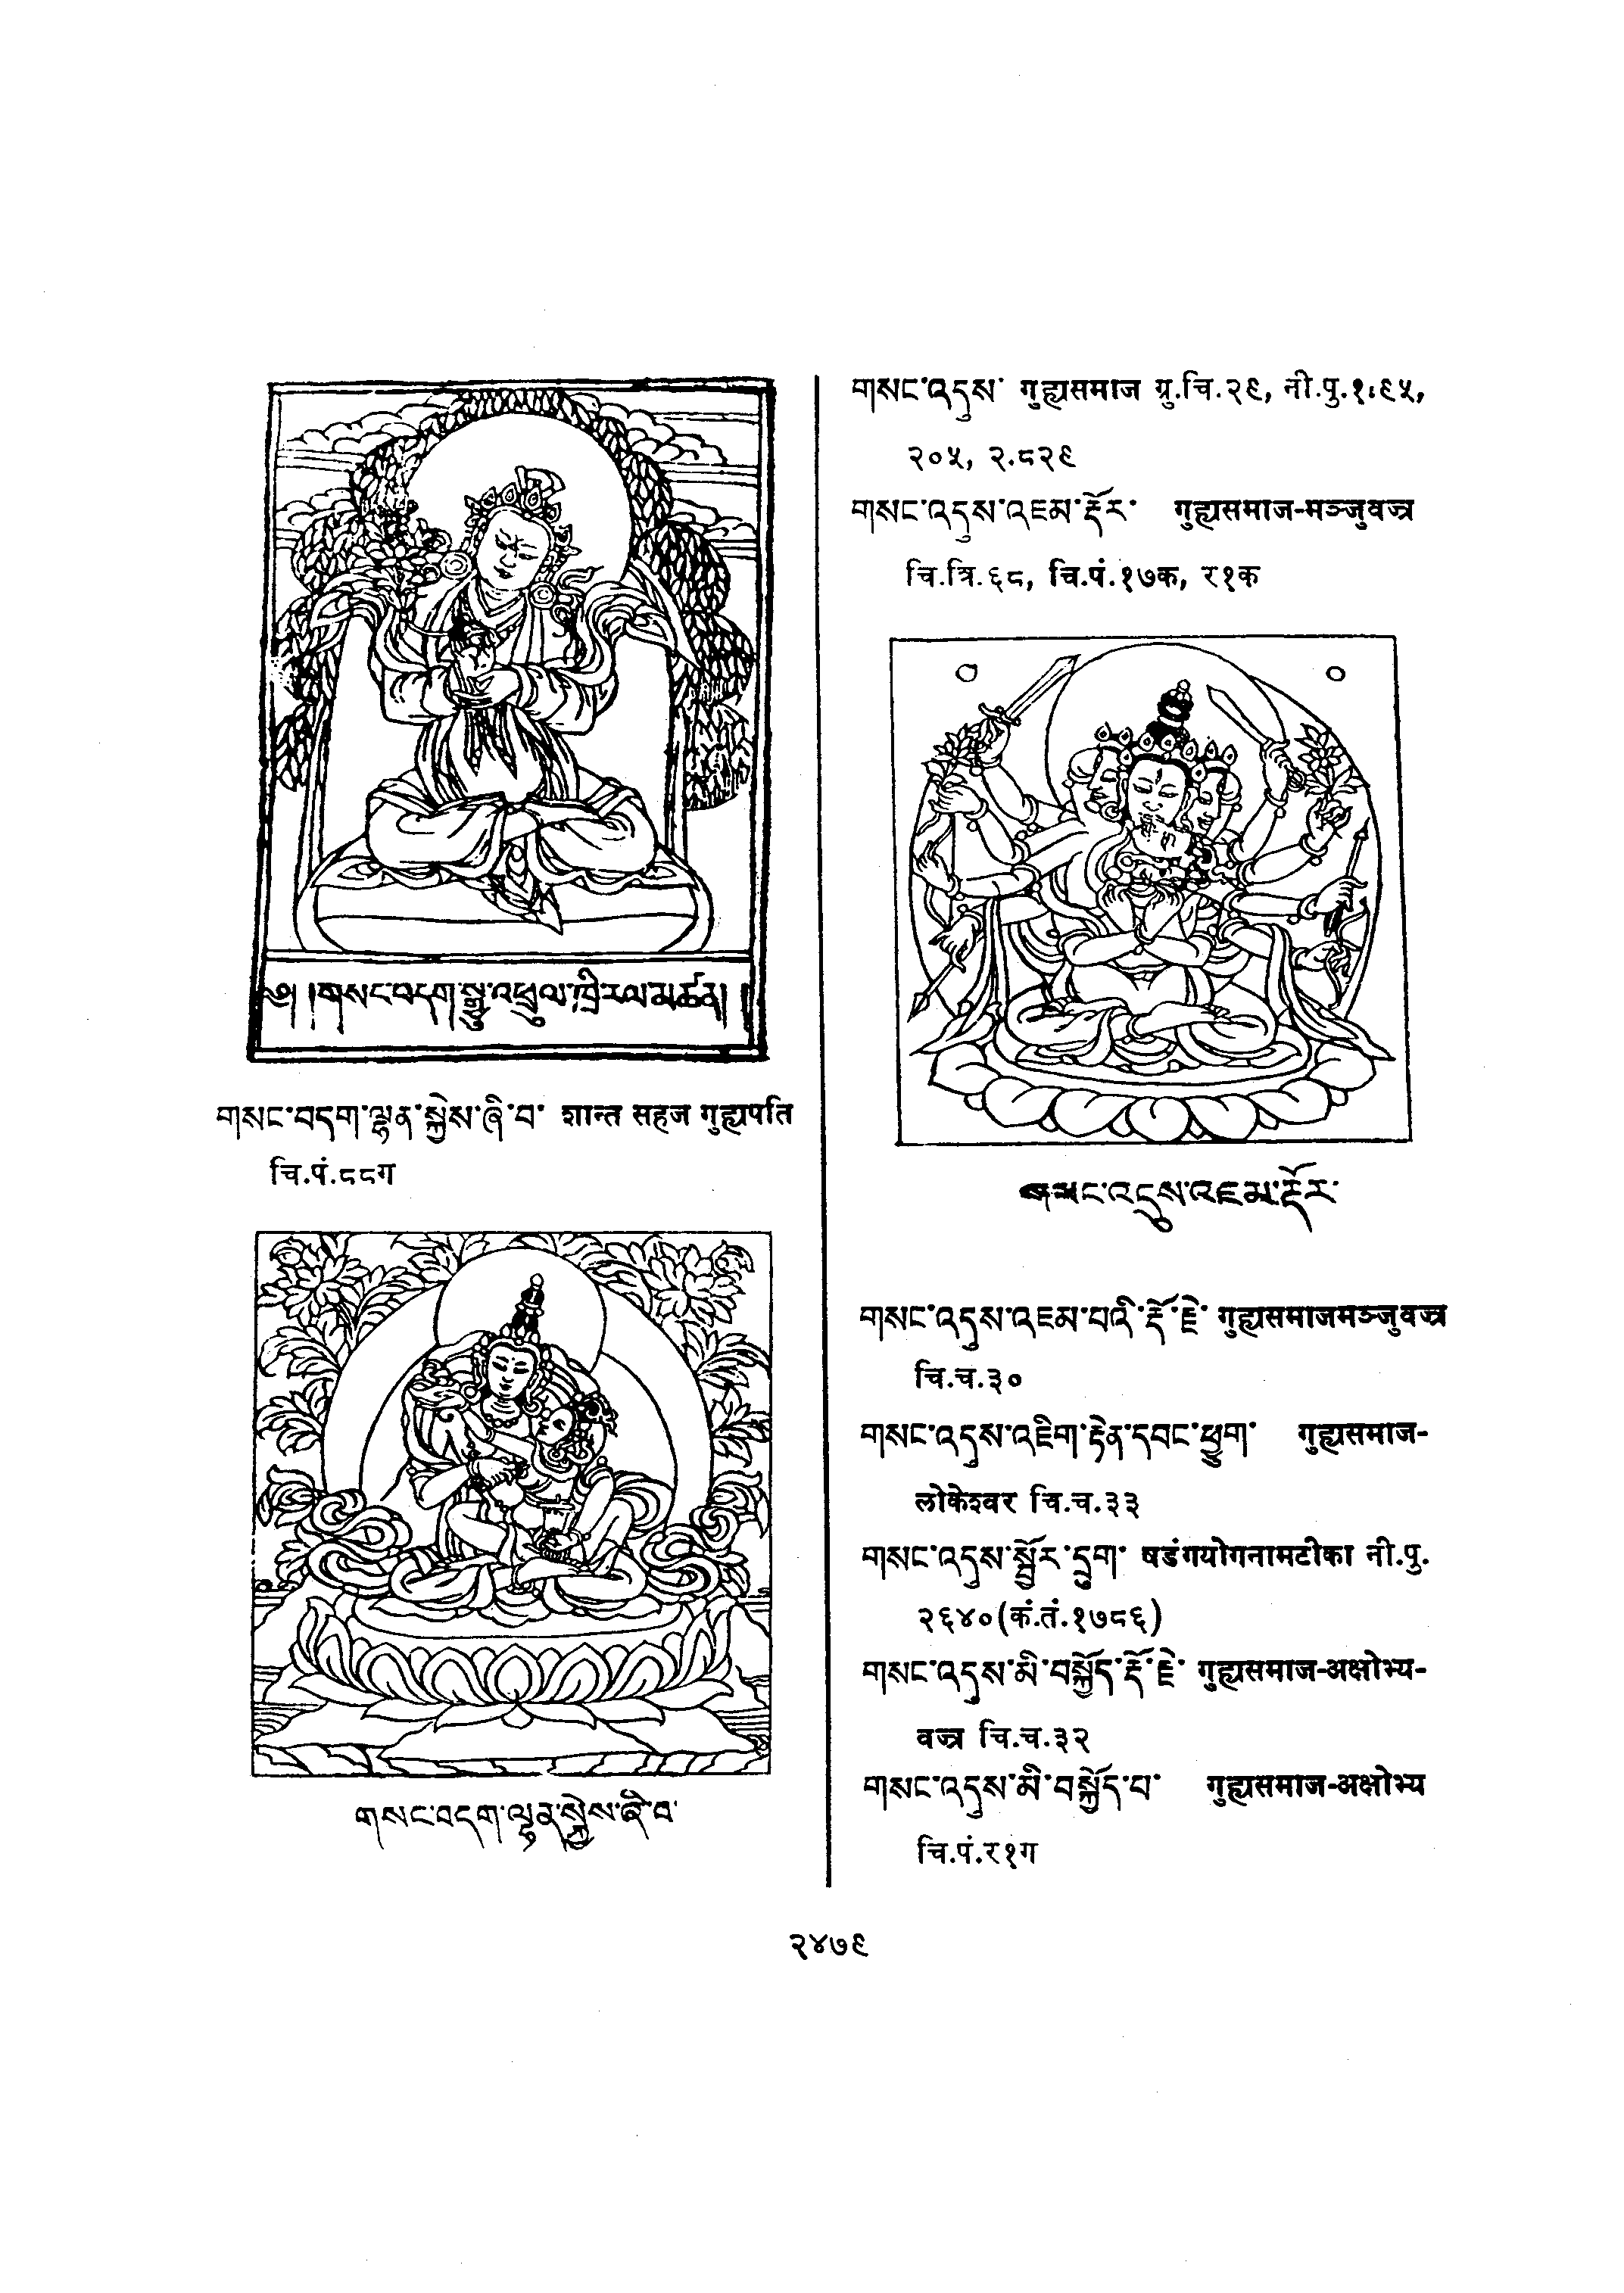 ༄། །གསང་བདག་སྒྱུ་འཕྲུལ་ཁྲི་རལ་མཚན། །
གསང་བདག་ལྷན་སྐྱེས་ཞི་བ་ शान्त सहज गुह्यपति
चि.पं.८८ग
གསང་བདག་ལྷན་སྐྱེས་ཞི་བ་
གསང་འདུས་ गुह्यसमाज ग्रु.चि.२९, नी.पु.१.९५,
२०५, २.८२९
གསང་འདུས་འཇམ་རྡོར་ गुह्यसमाज-मञ्जुवज्र
चि.त्रि.६८, चि.पं.१७क, र१क
གསང་འདུས་འཇམ་རྡོར་
གསང་འདུས་འཇམ་པའི་རྡོ་རྗེ་ गुह्यसमाजमञ्जुवज्र
चि.च.३०
གསང་འདུས་འཇིག་རྟེན་དབང་ཕྱུག་ गुह्यसमाज-
लोकेश्वर चि.च.३३
གསང་འདུས་སྦྱོར་དྲུག་ षडंगयोगनामटीका नी.पु.
२६४०(कं.तं.१७८६)
གསང་འདུས་མི་བསྐྱོད་རྡོ་རྗེ་ गुह्यसमाज-अक्षोभ्य-
वज्र चि.च.३२
གསང་འདུས་མི་བསྐྱོད་པ་ गुह्यसमाज-अक्षोभ्य
चि.पं.र१ग
२४७९